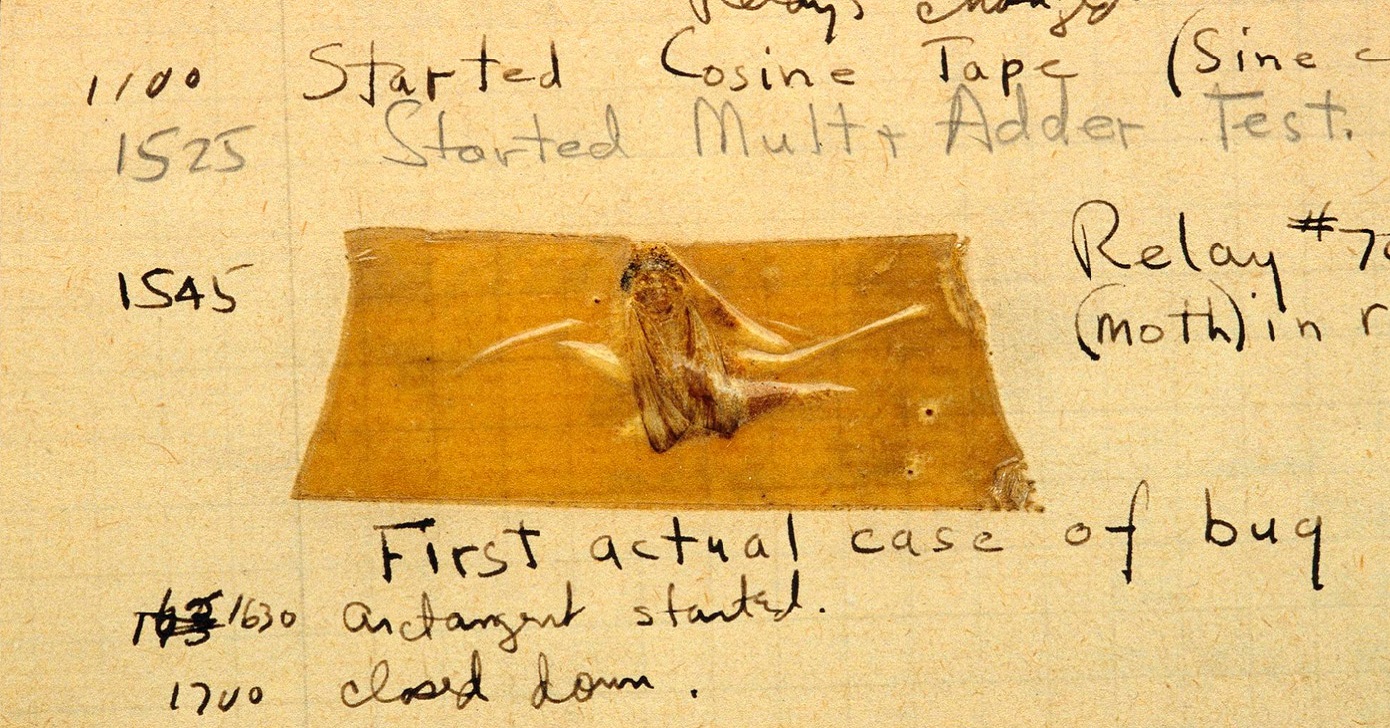 Relays changed
1100 Started Cosine Tape (Sine c
1525 Started Mult + Adder Test.
1545 Relay #70
(moth) in r
First actual case of bug
1630 arctangent started.
1700 closed down.